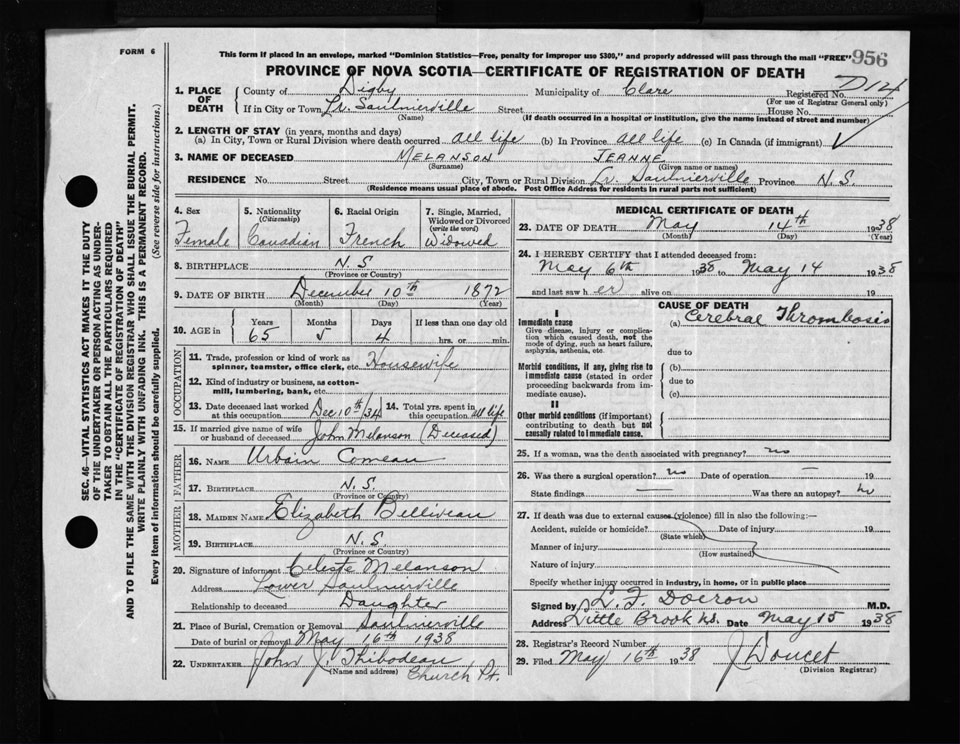 FORM 6
This form if placed in an envelope, marked "Dominion Statistics—Free, penalty for improper use $300," and properly addressed will pass through the mail "FREE" 956
PROVINCE OF NOVA SCOTIA—CERTIFICATE OF REGISTRATION OF DEATH
1. PLACE OF DEATH
County of Digby Municipality of Clare Registered No. D124
(For use of Registrar General only)
If in City or Town Lr. Saulnierville Street House No.
(Name) (If death occurred in a hospital or institution, give the name instead of street and number)
2. LENGTH OF STAY (in years, months and days)
(a) In City, Town or Rural Division where death occurred all life (b) In Province all life (c) In Canada (if immigrant)
3. NAME OF DECEASED MELANSON JEANNE
(Surname) (Given name or names)
RESIDENCE No. Street City, Town or Rural Division Lr. Saulnierville Province N.S.
(Residence means usual place of abode. Post Office Address for residents in rural parts not sufficient)
4. Sex Female
5. Nationality (Citizenship) Canadian
6. Racial Origin French
7. Single, Married, Widowed or Divorced (write the word) Widowed
8. BIRTHPLACE N.S
(Province or Country)
9. DATE OF BIRTH December 10th 1872
(Month) (Day) (Year)
10. AGE in Years 65 Months 5 Days 4 If less than one day old hrs. or min.
OCCUPATION
11. Trade, profession or kind of work as spinner, teamster, office clerk, etc. Housewife
12. Kind of industry or business, as cotton-mill, lumbering, bank, etc.
13. Date deceased last worked at this occupation Dec 10th/34
14. Total yrs. spent in this occupation all life
15. If married give name of wife or husband of deceased John Melanson (Deceased)
FATHER
16. Name Urbain Comeau
17. Birthplace N.S.
(Province or Country)
MOTHER
18. Maiden Name Elizabeth Belliveau
19. Birthplace N.S.
(Province or Country)
20. Signature of informant Celeste Melanson
Address Lower Saulnierville
Relationship to deceased Daughter
21. Place of Burial, Cremation or Removal Saulnierville
Date of burial or removal May 16th 1938
22. UNDERTAKER John J. Thibodeau
(Name and address) Church Pt.
MEDICAL CERTIFICATE OF DEATH
23. DATE OF DEATH May 14th 1938
(Month) (Day) (Year)
24. I HEREBY CERTIFY that I attended deceased from:
May 6th 1938 to May 14 1938
and last saw her alive on 19
CAUSE OF DEATH
I
Immediate cause
Give disease, injury or complication which caused death, not the mode of dying, such as heart failure, asphyxia, asthenia, etc.
(a) Cerebral Thrombosis
due to
Morbid conditions, if any, giving rise to immediate cause (stated in order proceeding backwards from immediate cause).
(b)
due to
(c)
II
Other morbid conditions (if important) contributing to death but not causally related to immediate cause.
25. If a woman, was the death associated with pregnancy? no
26. Was there a surgical operation? no Date of operation — 19
State findings — Was there an autopsy? no
27. If death was due to external causes (violence) fill in also the following:—
Accident, suicide or homicide? Date of injury 19
(State which)
Manner of injury
(How sustained)
Nature of injury
Specify whether injury occurred in industry, in home, or in public place
Signed by L. F. Doiron M.D.
Address Little Brook N.S. Date May 15 1938
28. Registrar's Record Number
29. Filed May 16th 1938 J Doucet
(Division Registrar)
SEC. 46—VITAL STATISTICS ACT MAKES IT THE DUTY
OF THE UNDERTAKER OR PERSON ACTING AS UNDER-
TAKER TO OBTAIN ALL THE PARTICULARS REQUIRED
IN THE "CERTIFICATE OF REGISTRATION OF DEATH"
AND TO FILE THE SAME WITH THE DIVISION REGISTRAR WHO SHALL ISSUE THE BURIAL PERMIT.
WRITE PLAINLY WITH UNFADING INK. THIS IS A PERMANENT RECORD.
Every item of information should be carefully supplied. (See reverse side for instructions.)